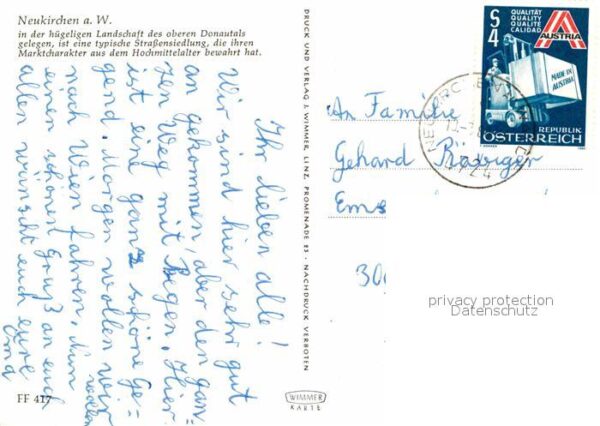 Neukirchen a. W.
in der hügeligen Landschaft des oberen Donautals
gelegen, ist eine typische Straßensiedlung, die ihren
Marktcharakter aus dem Hochmittelalter bewahrt hat.
Ihr lieben alle!
Wir sind hier sehr gut
angekommen, aber den gan=
zen Weg mit Regen, Hier
ist eine ganz schöne Ge=
gend. Morgen wollen wir
nach Wien fahren. Nun
einen schönen Gruß an euch
allen wünscht euch eure
Oma
FF 417
DRUCK UND VERLAG A. WIMMER, LINZ, PROMENADE 23 · NACHDRUCK VERBOTEN
WIMMER
KARTE
QUALITÄT
QUALITY
QUALITE
CALIDAD
S
4
AUSTRIA
MADE IN
AUSTRIA
REPUBLIK
ÖSTERREICH
4724
An Familie
Gehard
Ems
30
privacy protection
Datenschutz